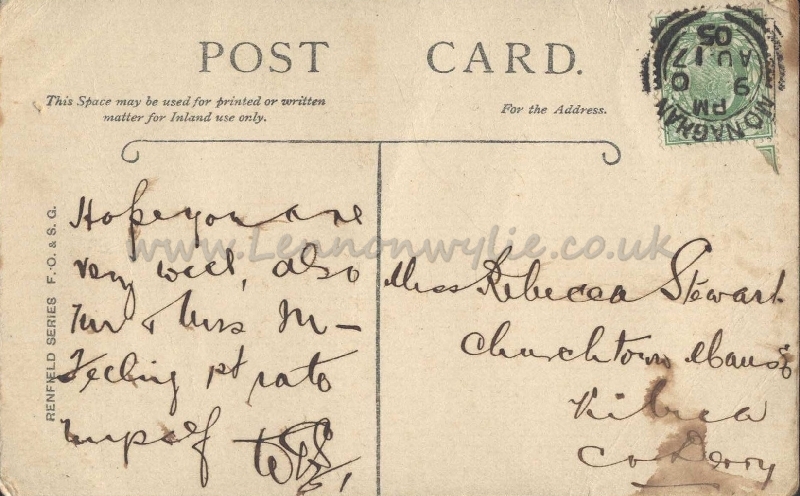 POST CARD.
This Space may be used for printed or written
matter for Inland use only.
For the Address.
MONAGHAN
9 PM
AU 17
05
RENFIELD SERIES F. O. & S. G.
www.Lennonwylie.co.uk
Hope you are
very well, also
Mr & Mrs M—
Feeling 1st rate
myself
Miss Rebecca Stewart
Churchtown Manse
Kilrea
Co Derry